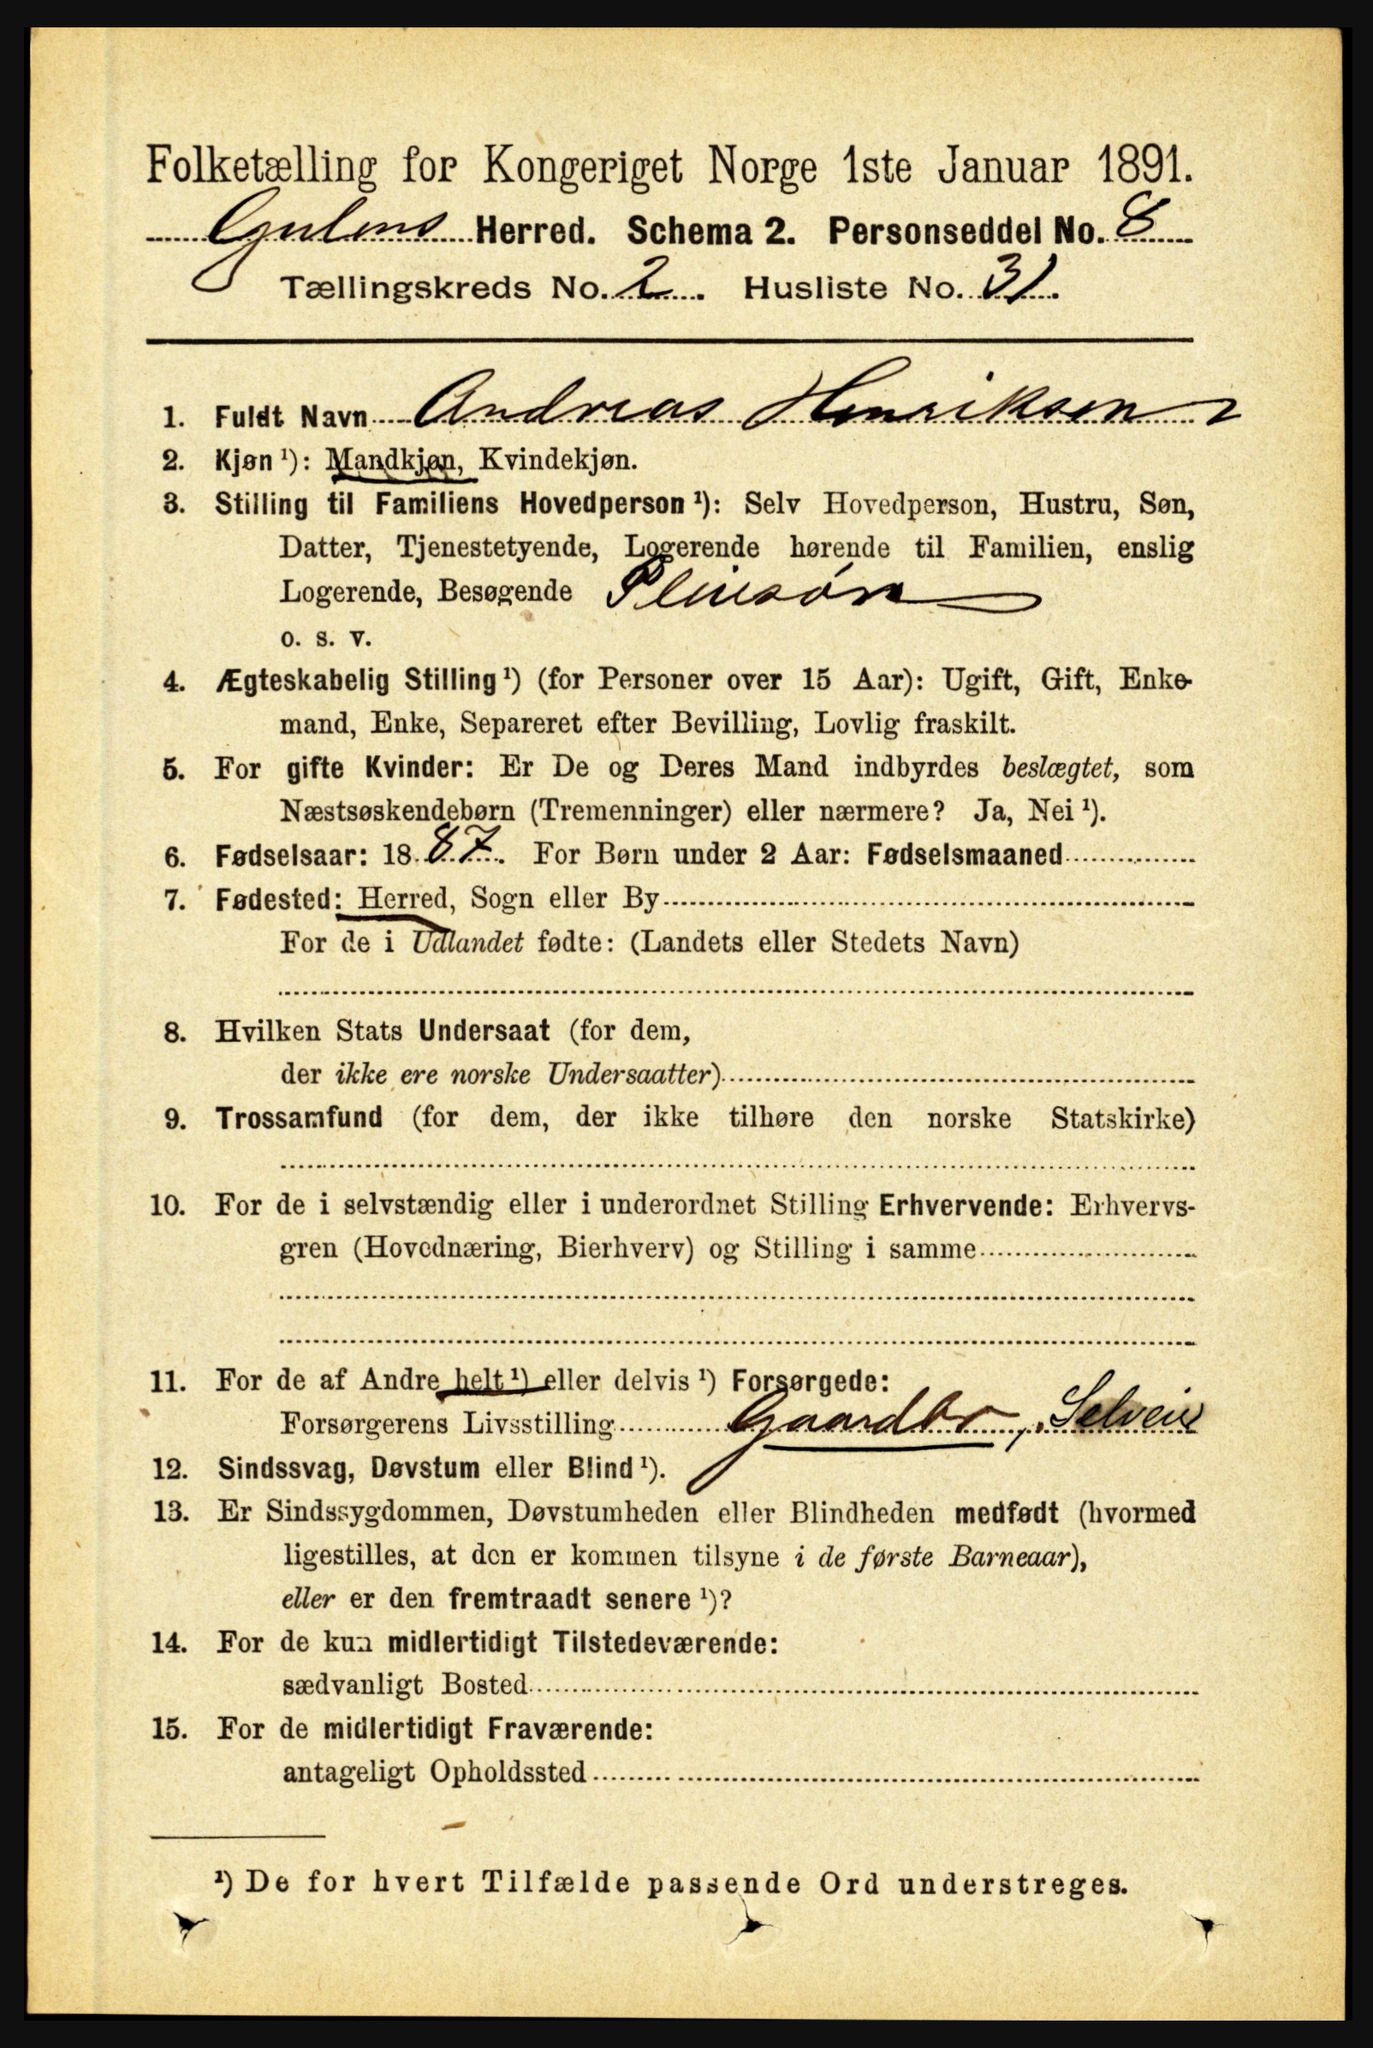 Folketælling for Kongeriget Norge 1ste Januar 1891.
Gulens Herred. Schema 2. Personseddel No. 8
Tællingskreds No. 2. Husliste No. 31.
1. Fuldt Navn Andreas Henriksen
2. Kjøn ¹): Mandkjøn, Kvindekjøn.
3. Stilling til Familiens Hovedperson ¹): Selv Hovedperson, Hustru, Søn,
Datter, Tjenestetyende, Logerende hørende til Familien, enslig
Logerende, Besøgende Pleiesøn
o. s. v.
4. Ægteskabelig Stilling ¹) (for Personer over 15 Aar): Ugift, Gift, Enke-
mand, Enke, Separeret efter Bevilling, Lovlig fraskilt.
5. For gifte Kvinder: Er De og Deres Mand indbyrdes beslægtet, som
Næstsøskendebørn (Tremenninger) eller nærmere? Ja, Nei ¹).
6. Fødselsaar: 1887. For Børn under 2 Aar: Fødselsmaaned
7. Fødested: Herred, Sogn eller By
For de i Udlandet fødte: (Landets eller Stedets Navn)
8. Hvilken Stats Undersaat (for dem,
der ikke ere norske Undersaatter)
9. Trossamfund (for dem, der ikke tilhøre den norske Statskirke)
10. For de i selvstændig eller i underordnet Stilling Erhvervende: Erhvervs-
gren (Hovednæring, Bierhverv) og Stilling i samme
11. For de af Andre helt ¹) eller delvis ¹) Forsørgede:
Forsørgerens Livsstilling Gaardbr, Selveier
12. Sindssvag, Døvstum eller Blind ¹).
13. Er Sindssygdommen, Døvstumheden eller Blindheden medfødt (hvormed
ligestilles, at den er kommen tilsyne i de første Barneaar),
eller er den fremtraadt senere ¹)?
14. For de kun midlertidigt Tilstedeværende:
sædvanligt Bosted
15. For de midlertidigt Fraværende:
antageligt Opholdssted
¹) De for hvert Tilfælde passende Ord understreges.